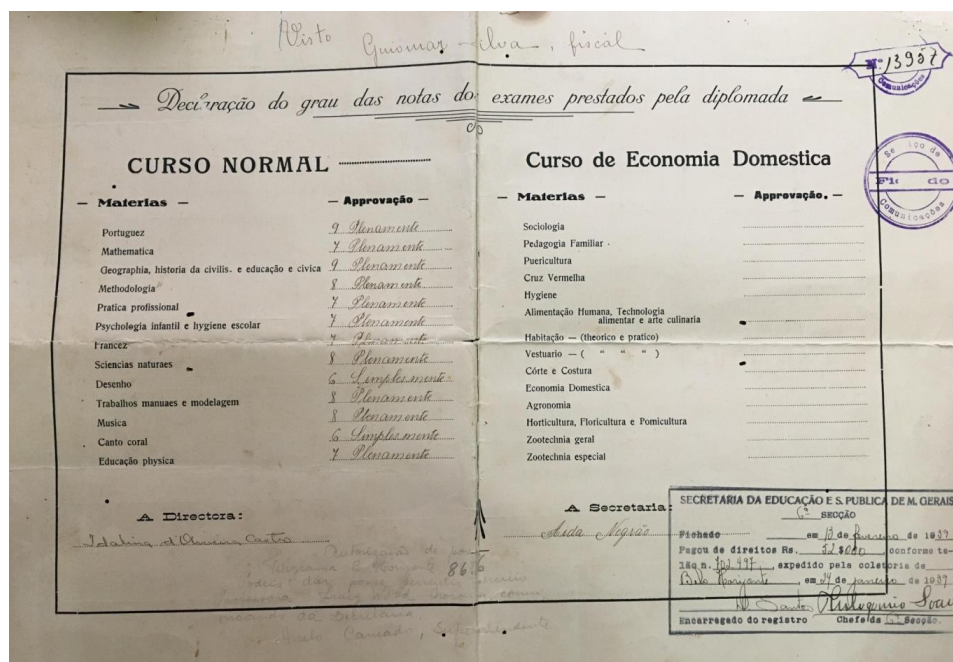 Visto
Guiomar Silva, fiscal
Nº 13957
Communicações
Declaração do grau das notas dos exames prestados pela diplomada
CURSO NORMAL
— Materias — — Approvação —
Portuguez 9 Plenamente
Mathematica 7 Plenamente
Geographia, historia da civilis. e educação e civica 9 Plenamente
Methodologia 8 Plenamente
Pratica profissional 7 Plenamente
Psychologia infantil e hygiene escolar 7 Plenamente
Francez 7 Plenamente
Sciencias naturaes 8 Plenamente
Desenho 6 Simplesmente
Trabalhos manuaes e modelagem 8 Plenamente
Musica 8 Plenamente
Canto coral 6 Simplesmente
Educação physica 7 Plenamente
A Directora:
Idalina d'Oliveira Castro
Curso de Economia Domestica
— Materias — — Approvação. —
Sociologia
Pedagogia Familiar
Puericultura
Cruz Vermelha
Hygiene
Alimentação Humana, Technologia
alimentar e arte culinaria
Habitação — (theorico e pratico)
Vestuario — ( " " " )
Córte e Costura
Economia Domestica
Agronomia
Horticultura, Floricultura e Pomicultura
Zootechnia geral
Zootechnia especial
A Secretaria:
Aida Negrão
Serviço de
Communicações
SECRETARIA DA EDUCAÇÃO E S. PUBLICA DE M. GERAIS
6ª SECÇÃO
Fichado em 13 de fevereiro de 1937
Pagou de direitos Rs. 52$000 conforme ta-
lão n. 702497, expedido pela coletoria de
Belo Horizonte, em 24 de janeiro de 1937
Santos
Encarregado do registro Chefe da 6ª Secção.
8676
Autorização de
da Secretaria